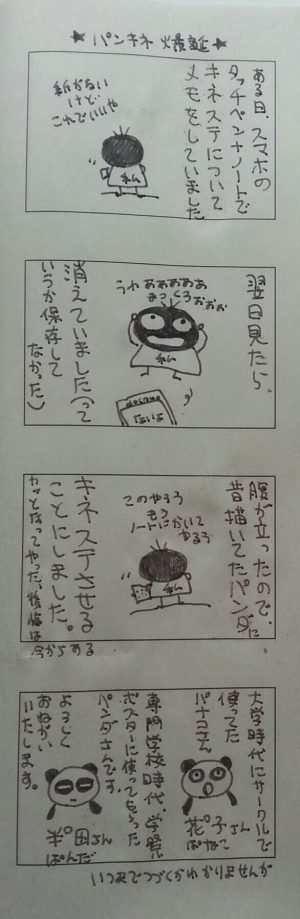 ★パンキネ爆誕★
ある日、スマホの
タッチペンナノートで
キネステについて
メモをしていました
紙がない
けど
これでいいや
ねム
翌日見たら、
うわああああああ
まっくろおおお
ねム
docomo
ないよ
消えていました(って
いうか保存して
なかった)
腹が立ったので、
昔描いてたパンダに
このやろう
もう
ノートにかいて
やるう
ねム
キネステさせる
ことにしました。
カッとなってやった、後悔は
今からある
大学時代にサークルで
使ってた
パナコさん
花゜子さん
ぱなこ
専門学校時代、学祭
ポスターに使ってもらった
パンダさんです。
半゜田さん
ぱんだ
よろしく
おねがい
いたします。
いつまでつづくかわかりませんが